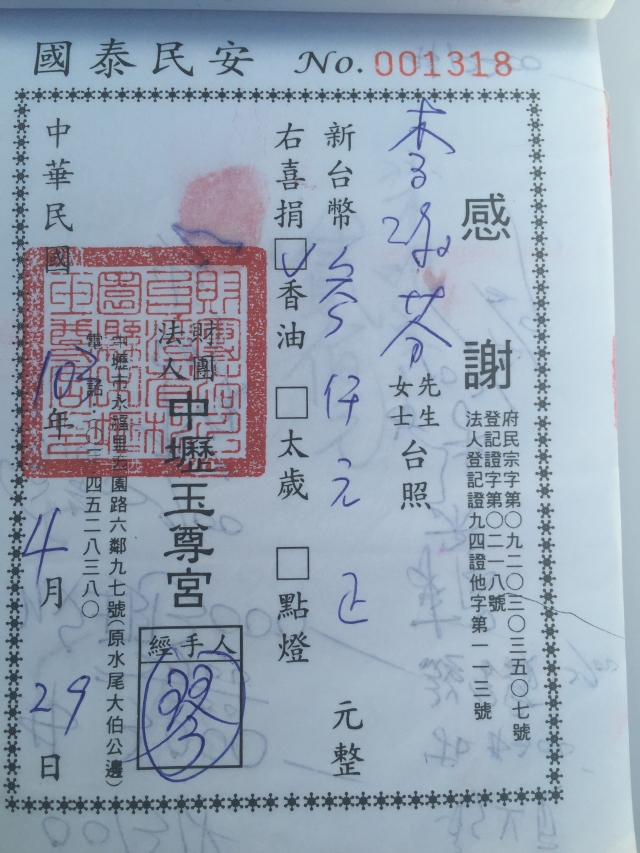 國泰民安 No. 001318
感謝
府民宗字第〇九二〇三〇三五〇七號
登記證字第〇二一八號
法人登記證九四證他字第一一三號
李
芬
先生
女士
台照
新台幣 參仟元正 元整
右喜捐 ☑香油 □太歲 □點燈
財團
法人
中壢玉尊宮
經手人
琴
鄰九七號(原水尾大伯公邊)
四五二八三八〇
中華民國 103年 4月 29日